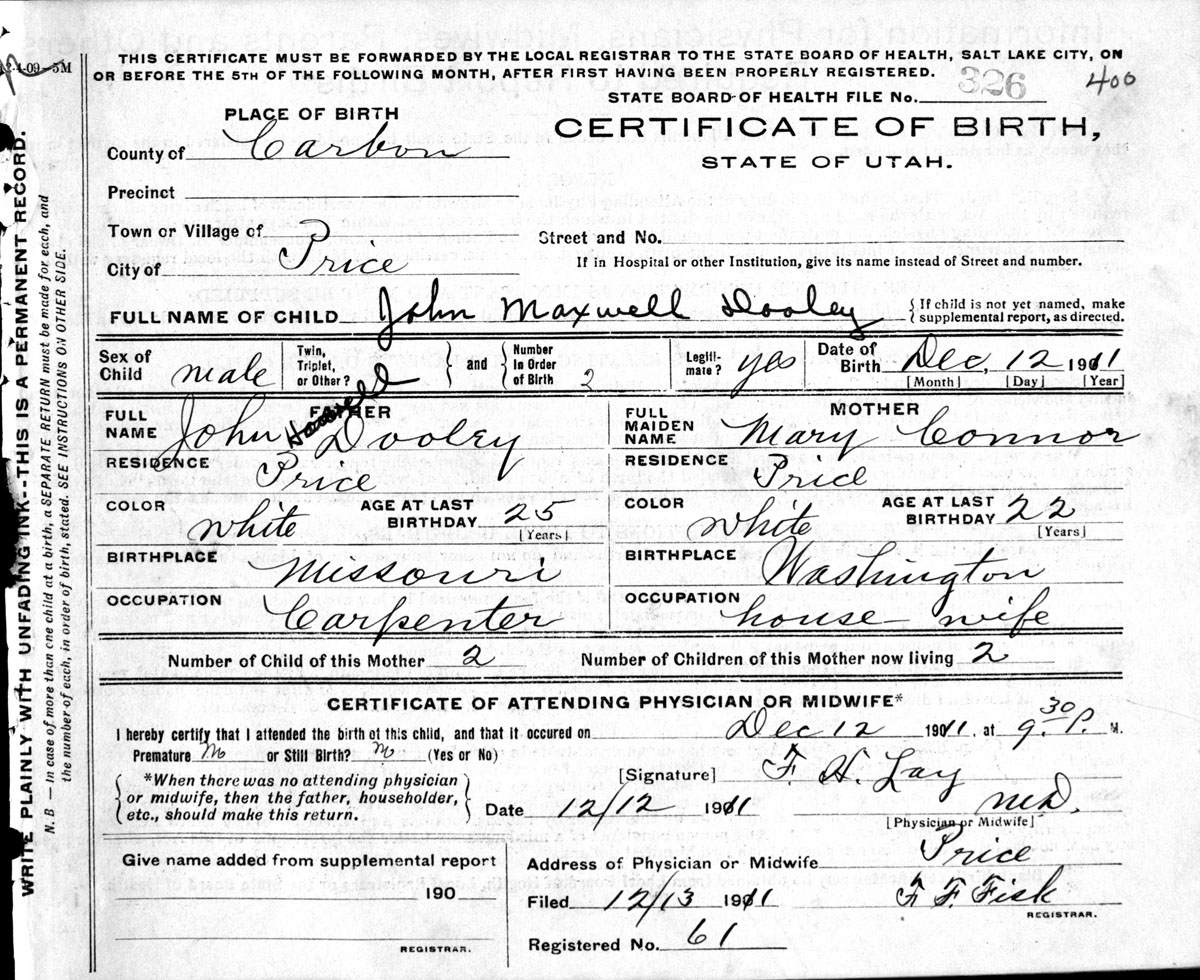 12-4-09-5M
THIS CERTIFICATE MUST BE FORWARDED BY THE LOCAL REGISTRAR TO THE STATE BOARD OF HEALTH, SALT LAKE CITY, ON
OR BEFORE THE 5TH OF THE FOLLOWING MONTH, AFTER FIRST HAVING BEEN PROPERLY REGISTERED.
STATE BOARD OF HEALTH FILE No. 326
400
PLACE OF BIRTH
CERTIFICATE OF BIRTH,
STATE OF UTAH.
County of Carbon
Precinct
Town or Village of
Street and No.
City of Price
If in Hospital or other Institution, give its name instead of Street and number.
FULL NAME OF CHILD John Maxwell Dooley { If child is not yet named, make
supplemental report, as directed.
Sex of Child male
Twin, Triplet, or Other?
} and {
Number In Order of Birth 2
Legiti-mate? yes
Date of Birth Dec, 12 1911
[Month] [Day] [Year]
FATHER
FULL NAME John Dooley
RESIDENCE Price
COLOR white AGE AT LAST BIRTHDAY 25
[Years]
BIRTHPLACE Missouri
OCCUPATION Carpenter
MOTHER
FULL MAIDEN NAME Mary Connor
RESIDENCE Price
COLOR white AGE AT LAST BIRTHDAY 22
[Years]
BIRTHPLACE Washington
OCCUPATION house wife
Number of Child of this Mother 2 Number of Children of this Mother now living 2
CERTIFICATE OF ATTENDING PHYSICIAN OR MIDWIFE*
I hereby certify that I attended the birth of this child, and that it occured on Dec 12 1911, at 9.30 P. M.
Premature No or Still Birth? No (Yes or No)
*When there was no attending physician
or midwife, then the father, householder,
etc., should make this return.
[Signature] F. H. Lay
Date 12/12 1911 M.D.
[Physician or Midwife]
Give name added from supplemental report
190
REGISTRAR.
Address of Physician or Midwife Price
Filed 12/13 1911 F. F. Fisk
REGISTRAR.
Registered No. 61
WRITE PLAINLY WITH UNFADING INK--THIS IS A PERMANENT RECORD.
N. B. — In case of more than one child at a birth, a SEPARATE RETURN must be made for each, and
the number of each, in order of birth, stated. SEE INSTRUCTIONS ON OTHER SIDE.